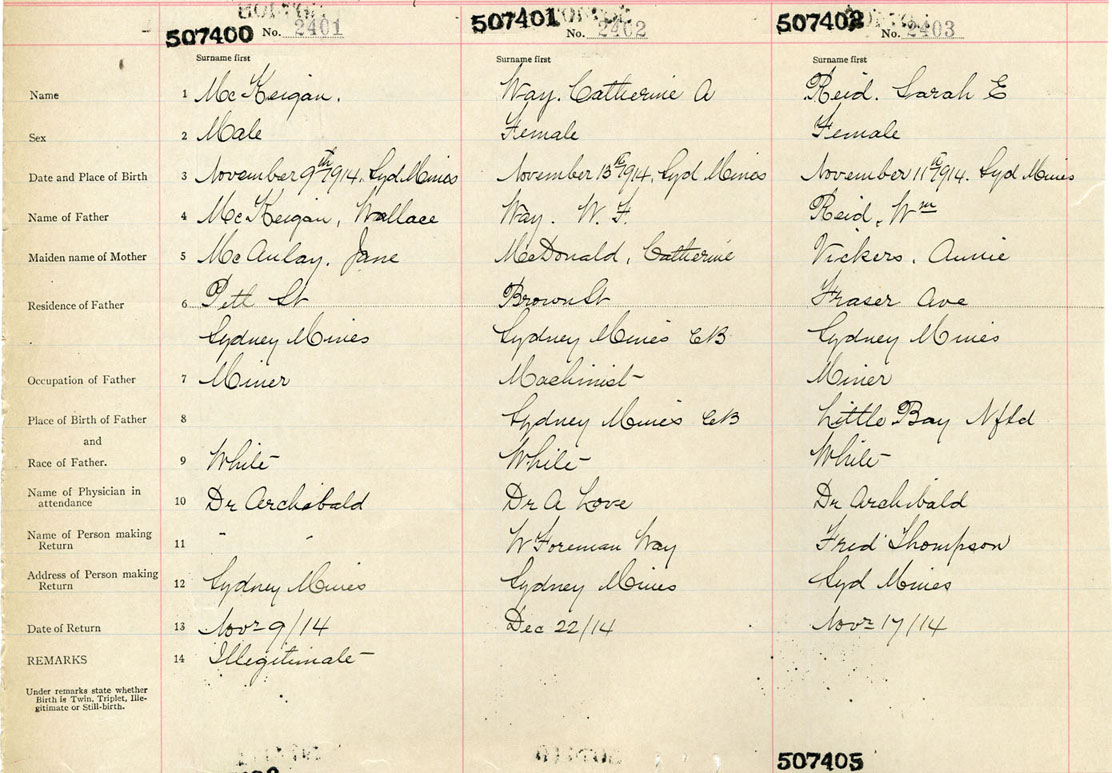 507400 No. 2401 507401 No. 2402 507402 No. 2403
Surname first Surname first Surname first
Name 1 McKeigan. Way. Catherine A Reid. Sarah E
Sex 2 Male Female Female
Date and Place of Birth 3 November 9th 1914. Syd Mines November 13th 1914. Syd Mines November 11th 1914. Syd Mines
Name of Father 4 McKeigan, Wallace Way. W. F. Reid, Wm
Maiden name of Mother 5 McAulay. Jane McDonald, Catherine Vickers. Annie
Residence of Father 6 St Brown St Fraser Ave
Sydney Mines Sydney Mines CB Sydney Mines
Occupation of Father 7 Miner Machinist Miner
Place of Birth of Father 8 Sydney Mines CB Little Bay Nfld
and
Race of Father. 9 White White White
Name of Physician in
attendance 10 Dr Archibald Dr A Love Dr Archibald
Name of Person making
Return 11 " " W Foreman Way Fred Thompson
Address of Person making
Return 12 Sydney Mines Sydney Mines Syd Mines
Date of Return 13 Novr 9/14 Dec 22/14 Novr 17/14
REMARKS 14 Illegitimate
Under remarks state whether
Birth is Twin, Triplet, Ille-
gitimate or Still-birth.
507405